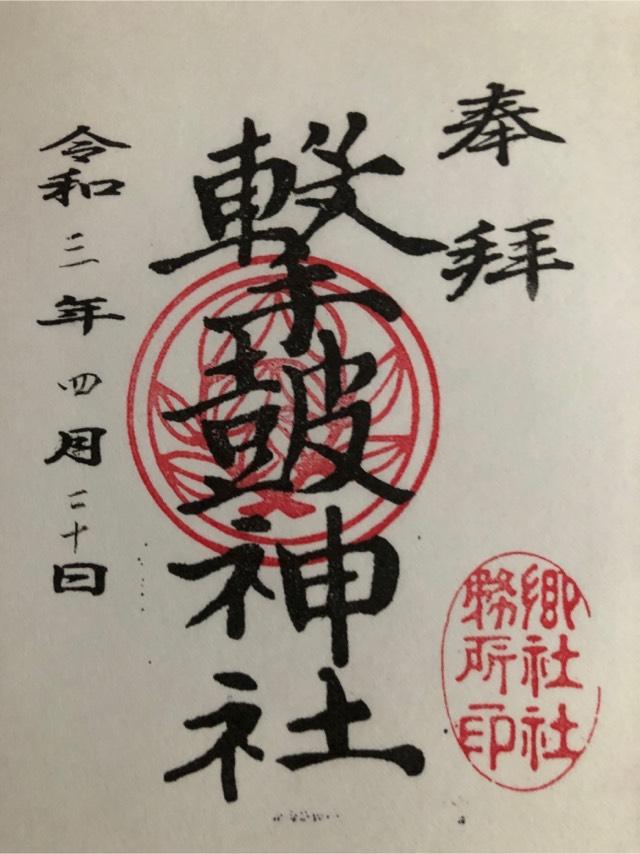 奉拝
撃皷神社
令和三年四月二十日
郷社社
務所印